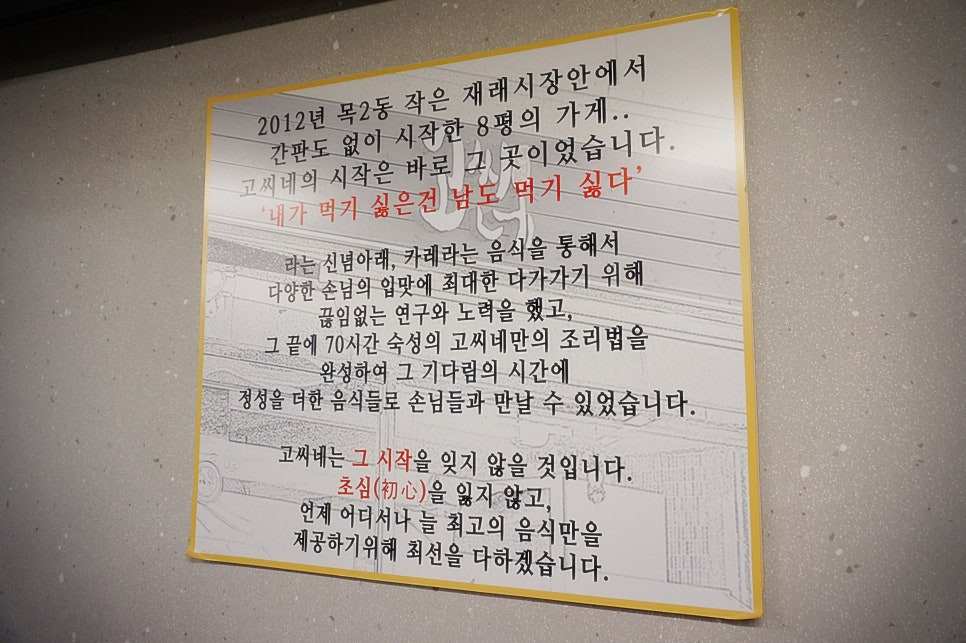 2012년 목2동 작은 재래시장안에서
간판도 없이 시작한 8평의 가게..
고씨네의 시작은 바로 그 곳이었습니다.
‘내가 먹기 싫은건 남도 먹기 싫다’
라는 신념아래, 카레라는 음식을 통해서
다양한 손님의 입맛에 최대한 다가가기 위해
끊임없는 연구와 노력을 했고,
그 끝에 70시간 숙성의 고씨네만의 조리법을
완성하여 그 기다림의 시간에
정성을 더한 음식들로 손님들과 만날 수 있었습니다.
고씨네는 그 시작을 잊지 않을 것입니다.
초심(初心)을 잃지 않고,
언제 어디서나 늘 최고의 음식만을
제공하기위해 최선을 다하겠습니다.